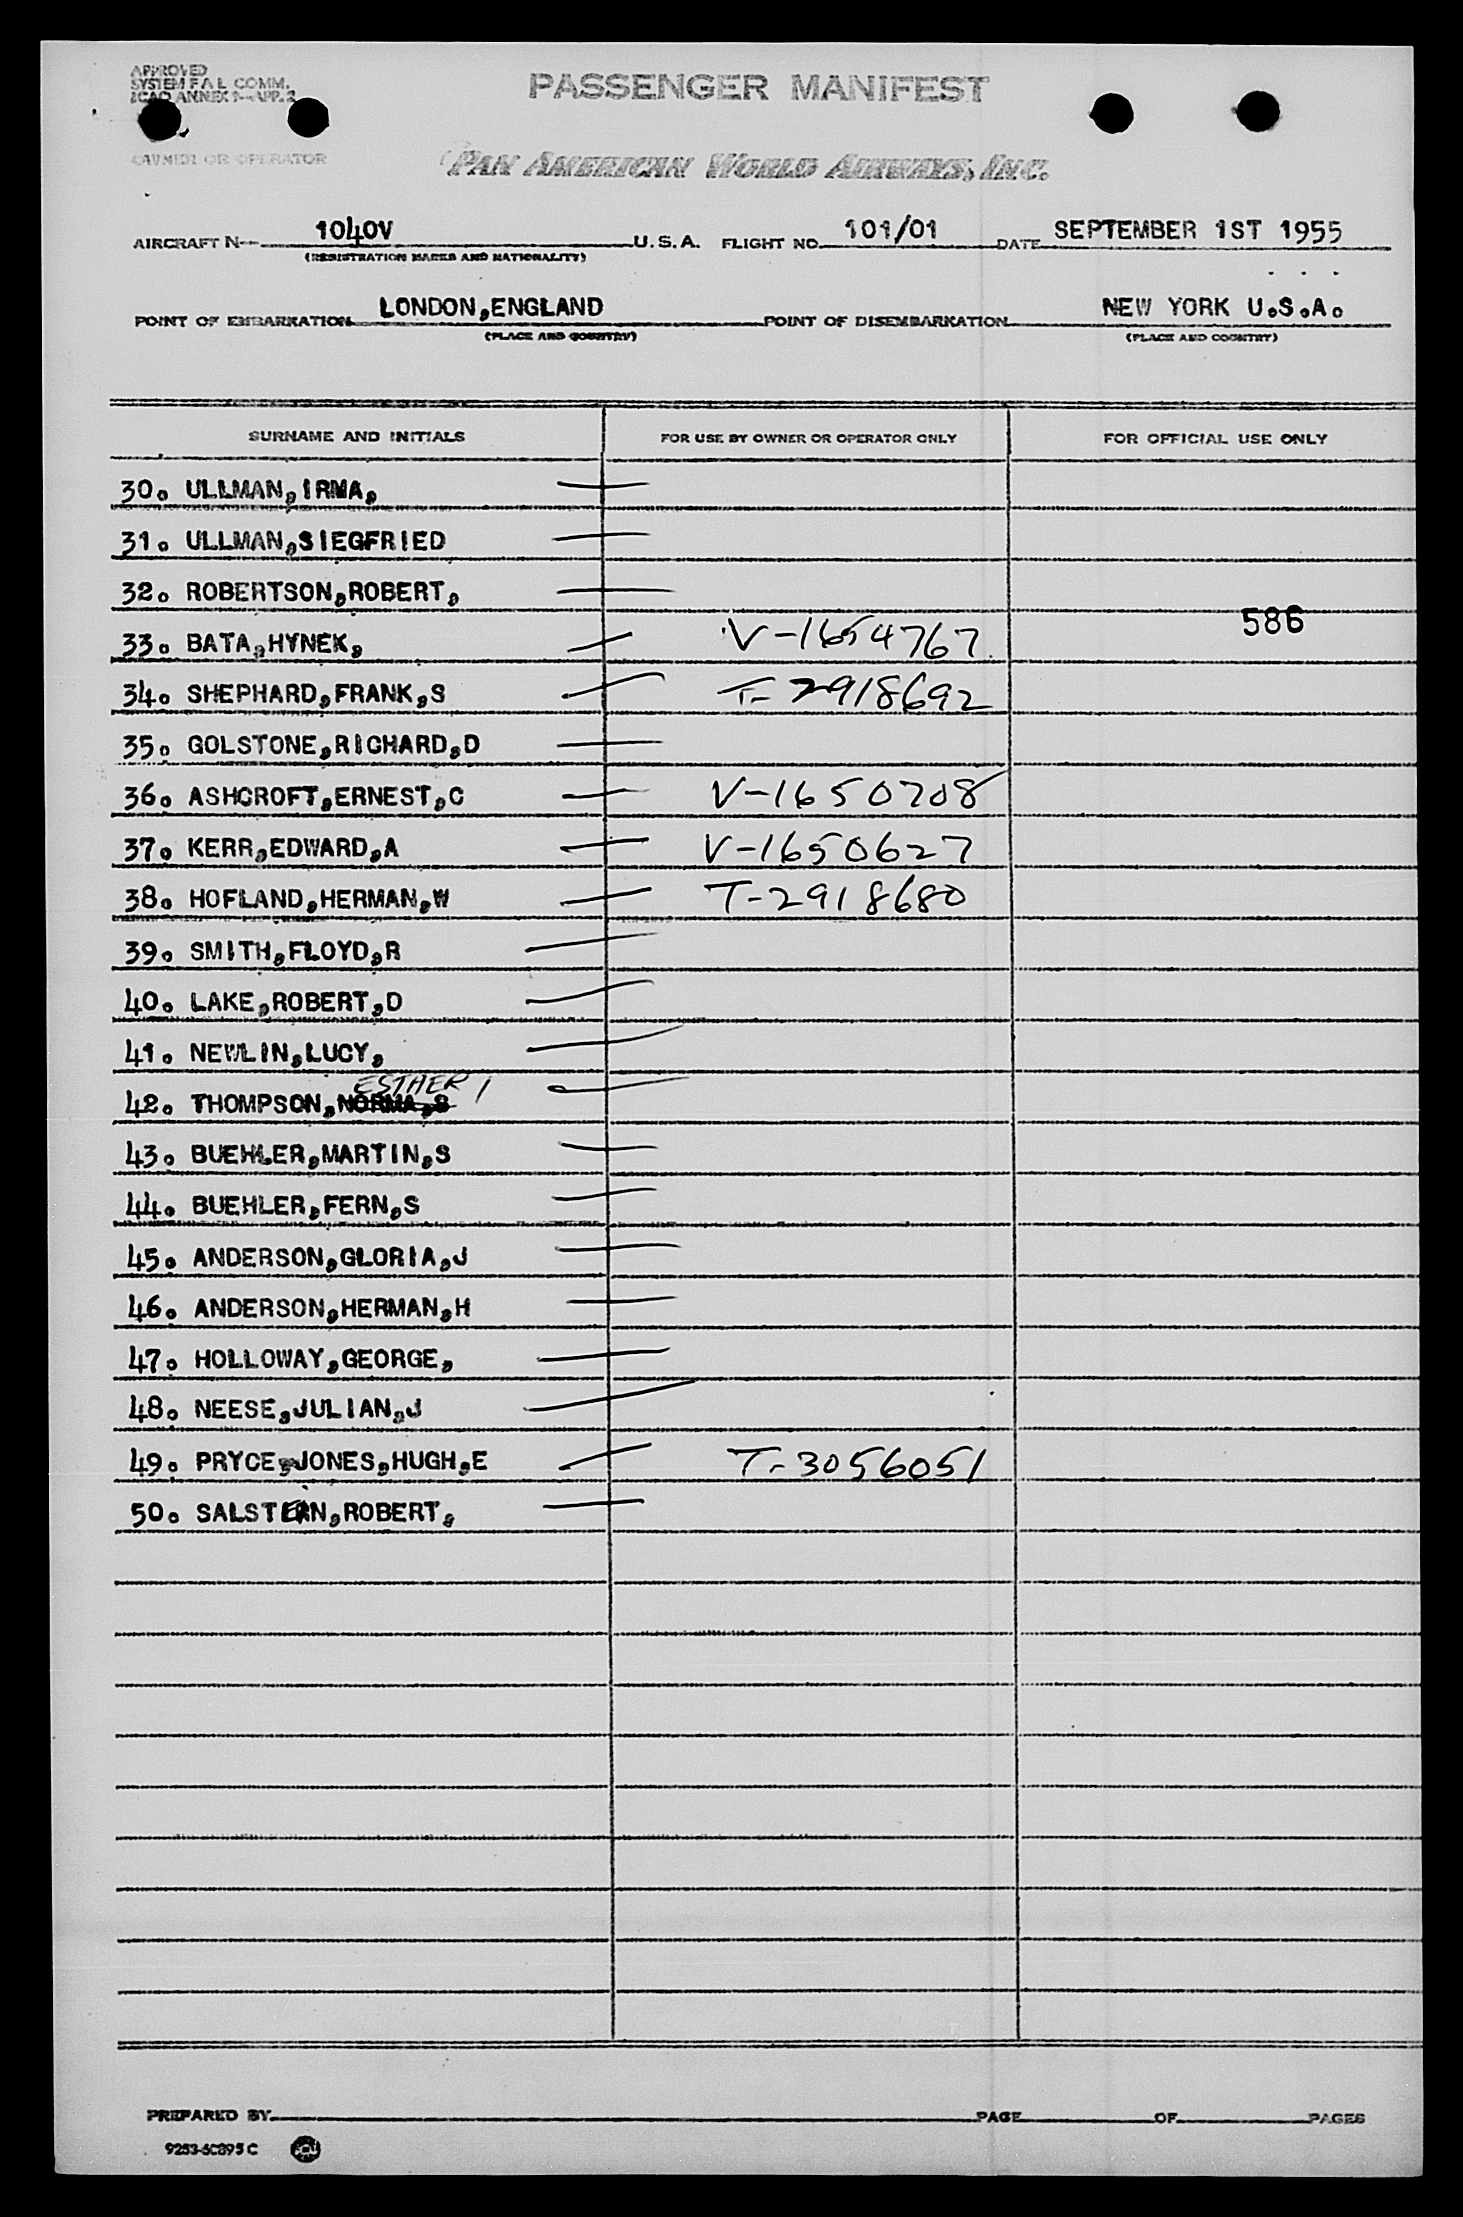 APPROVED
SYSTEM F A L COMM.
ICAO ANNEX 9-APP. 2
PASSENGER MANIFEST
OWNER OR OPERATOR
PAN AMERICAN WORLD AIRWAYS, INC.
AIRCRAFT N- 1040V U.S.A. FLIGHT NO. 101/01 DATE SEPTEMBER 1ST 1955
(REGISTRATION MARKS AND NATIONALITY)
POINT OF EMBARKATION LONDON,ENGLAND POINT OF DISEMBARKATION NEW YORK U.S.A.
(PLACE AND COUNTRY) (PLACE AND COUNTRY)
SURNAME AND INITIALS FOR USE BY OWNER OR OPERATOR ONLY FOR OFFICIAL USE ONLY
30. ULLMAN,IRMA,
31. ULLMAN,SIEGFRIED
32. ROBERTSON,ROBERT,
586
33. BATA,HYNEK, V-1654767
34. SHEPHARD,FRANK,S T-2918692
35. GOLSTONE,RICHARD,D
36. ASHCROFT,ERNEST,C V-1650708
37. KERR,EDWARD,A V-1650627
38. HOFLAND,HERMAN,W T-2918680
39. SMITH,FLOYD,R
40. LAKE,ROBERT,D
41. NEWLIN,LUCY,
ESTHER
42. THOMPSON,NORMA,S
43. BUEHLER,MARTIN,S
44. BUEHLER,FERN,S
45. ANDERSON,GLORIA,J
46. ANDERSON,HERMAN,H
47. HOLLOWAY,GEORGE,
48. NEESE,JULIAN,J
49. PRYCE-JONES,HUGH,E T-3056051
50. SALSTEIN,ROBERT,
PREPARED BY PAGE OF PAGES